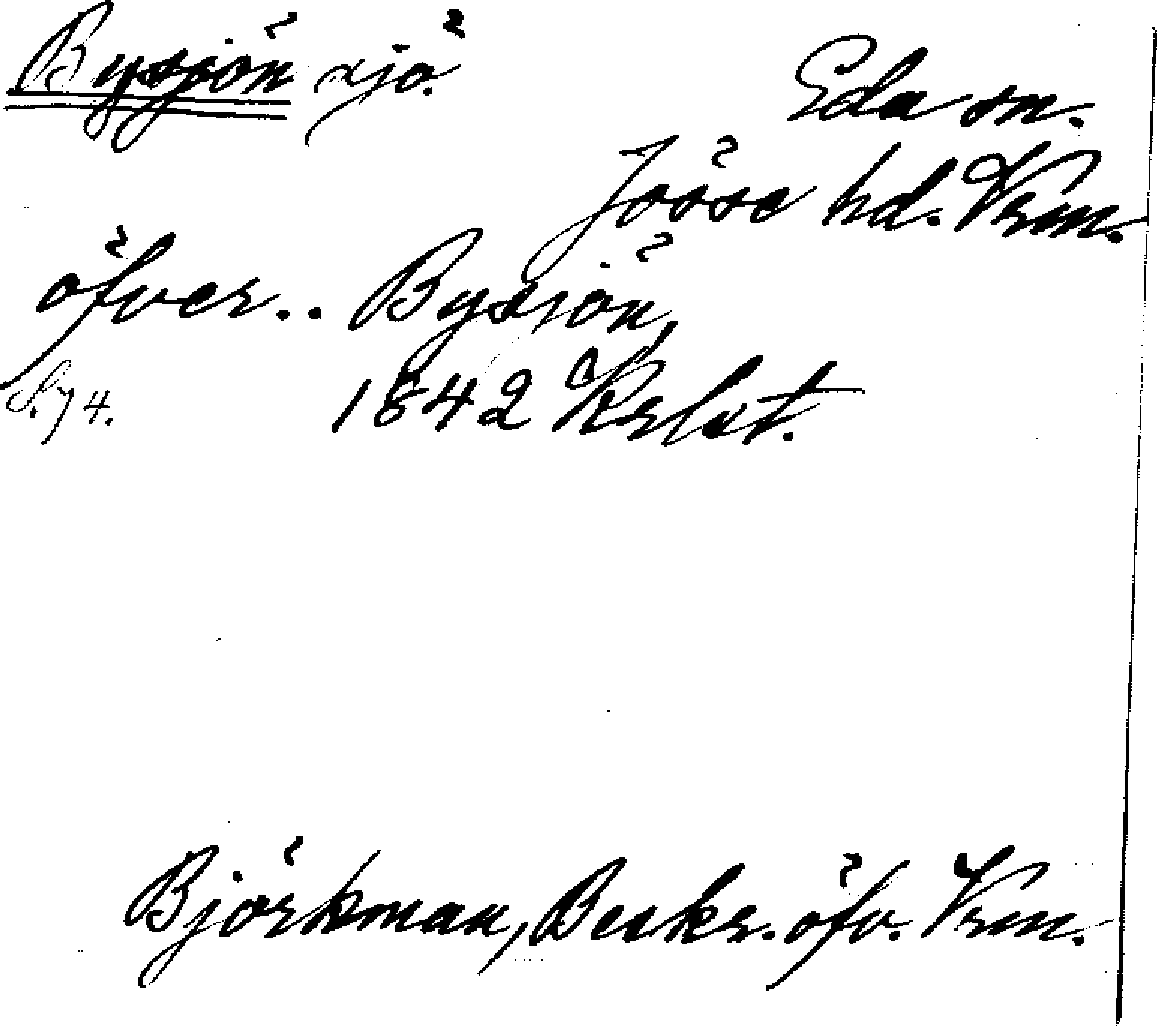 Bysjön sjö.
Eda sn.
Jösse hd. Vrm.
öfver.. Bysjön,
S. 74. 1842 Krlst.
Björkman, Beskr. öfv. Vrm.